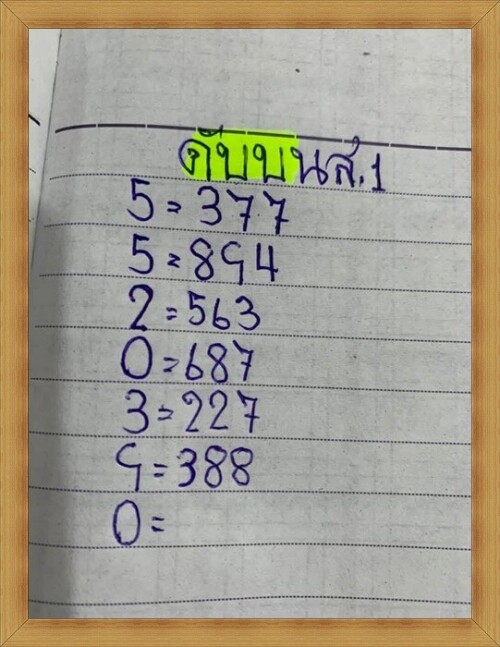 ดับบนส.1
5=377
5=894
2=563
0=687
3=227
9=388
0=